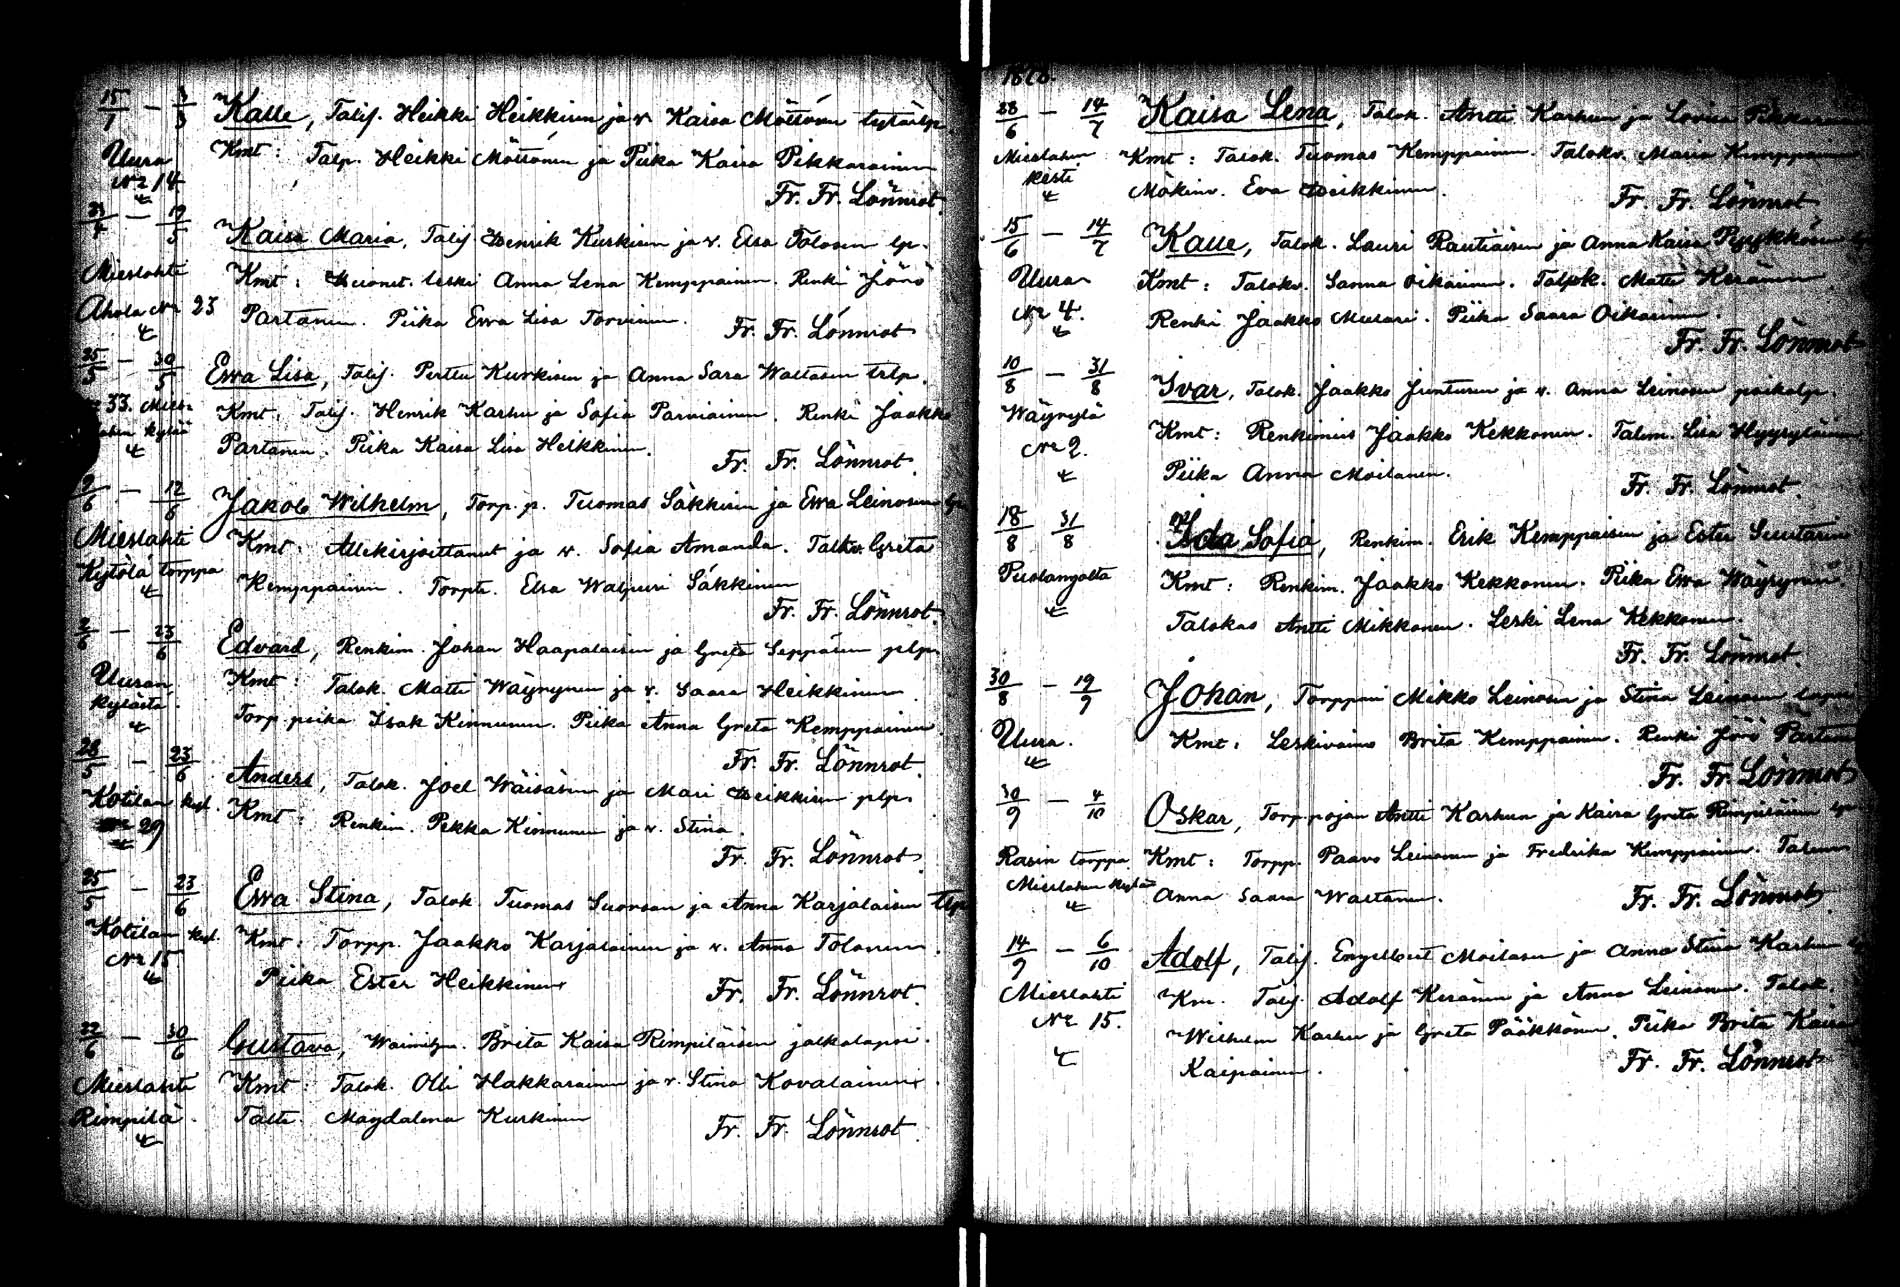 15/1 – 3/3 Kalle, Talij. Heikki Heikkinen ja v. Kaisa Möttönen
Uura Kmt: Talp. Heikki Möttönen ja Piika Kaisa Pikkarainen
№ 14
Fr. Fr. Lönnrot.
19/5 Kaisa Maria, Talij Henrik Kurkisen ja v. Elsa Tolosen lp.
Mieslahti Kmt: Huonet. leski Anna Lena Kemppainen. Renki Jörö
Ahola № 23 Partanen. Piika Ewa Lisa Torvinen.
Fr. Fr. Lönnrot
25/5 – 30/5 Ewa Lisa, Talij. Perttu Kurkisen ja Anna Sara Waltasen trlp.
33. Kmt: Talij. Henrik Karhu ja Sofia Parviainen. Renki Jaakko
kylää Partanen. Piika Kaisa Lisa Heikkinen.
Fr. Fr. Lönnrot.
9/6 – 12/6 Jakob Wilhelm, Torp. p. Tuomas Säkkisen ja Ewa Leinosen
Mieslahti Kmt: Allekirjoittanut ja v. Sofia Amanda. Talkv. Greta
Kytölä torppa Kemppainen. Torpte. Elsa Walpuri Säkkinen
Fr. Fr. Lönnrot.
2/6 – 23/6 Edvard, Renkim. Johan Haapalaisen ja Greta Seppäsen plp.
Uuran Kmt: Talok. Matti Wäyrynen ja v. Saara Heikkinen
kylästä. Torp. poika Isak Kinnunen. Piika Anna Greta Kemppainen.
Fr. Fr. Lönnrot.
28/5 – 23/6 Anders, Talok. Joel Wäisäsen ja Mari Heikkisen plp.
Kotilan kyl. Kmt: Renkim. Pekka Kinnunen ja v. Stina.
29
Fr. Fr. Lönnrot.
25/5 – 23/6 Ewa Stina, Talok. Tuomas Suorsan ja Anna Karjalaisen tlp.
Kotilan kyl. Kmt: Torpp. Jaakko Karjalainen ja v. Anna Tolonen.
№ 15 Piika Ester Heikkinen
Fr. Fr. Lönnrot.
22/6 – 30/6 Gustava, Brita Kaisa Rimpiläisen jalkalapsi.
Mieslahti Kmt: Talok. Olli Hakkarainen ja v. Stina Kovalainen.
Rimpilä. Talte. Magdalena Kurkinen
Fr. Fr. Lönnrot.
28/6 – 14/7 Kaisa Lena, Talok. Antti Karhun ja Lovisa Pikkaraisen
Mieslahen Kmt: Talok. Tuomas Kemppainen. Talokv. Maria Kemppainen
Mökinv. Eva Heikkinen.
Fr. Fr. Lönnrot
15/6 – 14/7 Kalle, Talok. Lauri Rautiaisen ja Anna Kaisa
Uuran Kmt: Talokv. Sanna Oikarinen. Talpk. Matti Keränen.
№ 4. Renki Jaakko Mulari. Piika Saara Oikarinen.
Fr. Fr. Lönnrot
10/8 – 31/8 Ivar, Talok. Jaakko Juntusen ja v. Anna Leinosen poikalp.
Wäyrylä Kmt: Renkimies Jaakko Kekkonen. Talem. Lisa Hyyryläinen
№ 2. Piika Anna Moilanen.
Fr. Fr. Lönnrot.
18/8 31/8 Ida Sofia, Renkim. Erik Kemppaisen ja Ester Suutarin
Puolangalta Kmt: Renkim. Jaakko Kekkonen. Piika Ewa Wäyrynen.
Talokas Antti Mikkonen. Leski Lena Kekkonen.
Fr. Fr. Lönnrot.
30/8 – 19/9 Johan, Torppari Mikko Leinosen ja Stina Leinosen
Uura. Kmt: Leskivaimo Brita Kemppainen. Renki Jörö Partanen
Fr. Fr. Lönnrot
30/9 – 4/10 Oskar, Torp. pojan Antti Karhun ja Kaisa Greta Rimpiläisen
Rasin torppa Kmt: Torpp. Paavo Leinonen ja Fredrika Kemppainen.
Mieslahen kylää Anna Saara Waltanen.
Fr. Fr. Lönnrot.
14/9 – 6/10 Adolf, Talij. Engelbert Moilasen ja Anna Stina Karhun
Mieslahti Km. Talij. Adolf Keränen ja Anna Leinonen. Talok.
№ 15. Wilhelm Karhu ja Greta Pääkkönen. Piika Brita Kaisa
Kaipainen.
Fr. Fr. Lönnrot